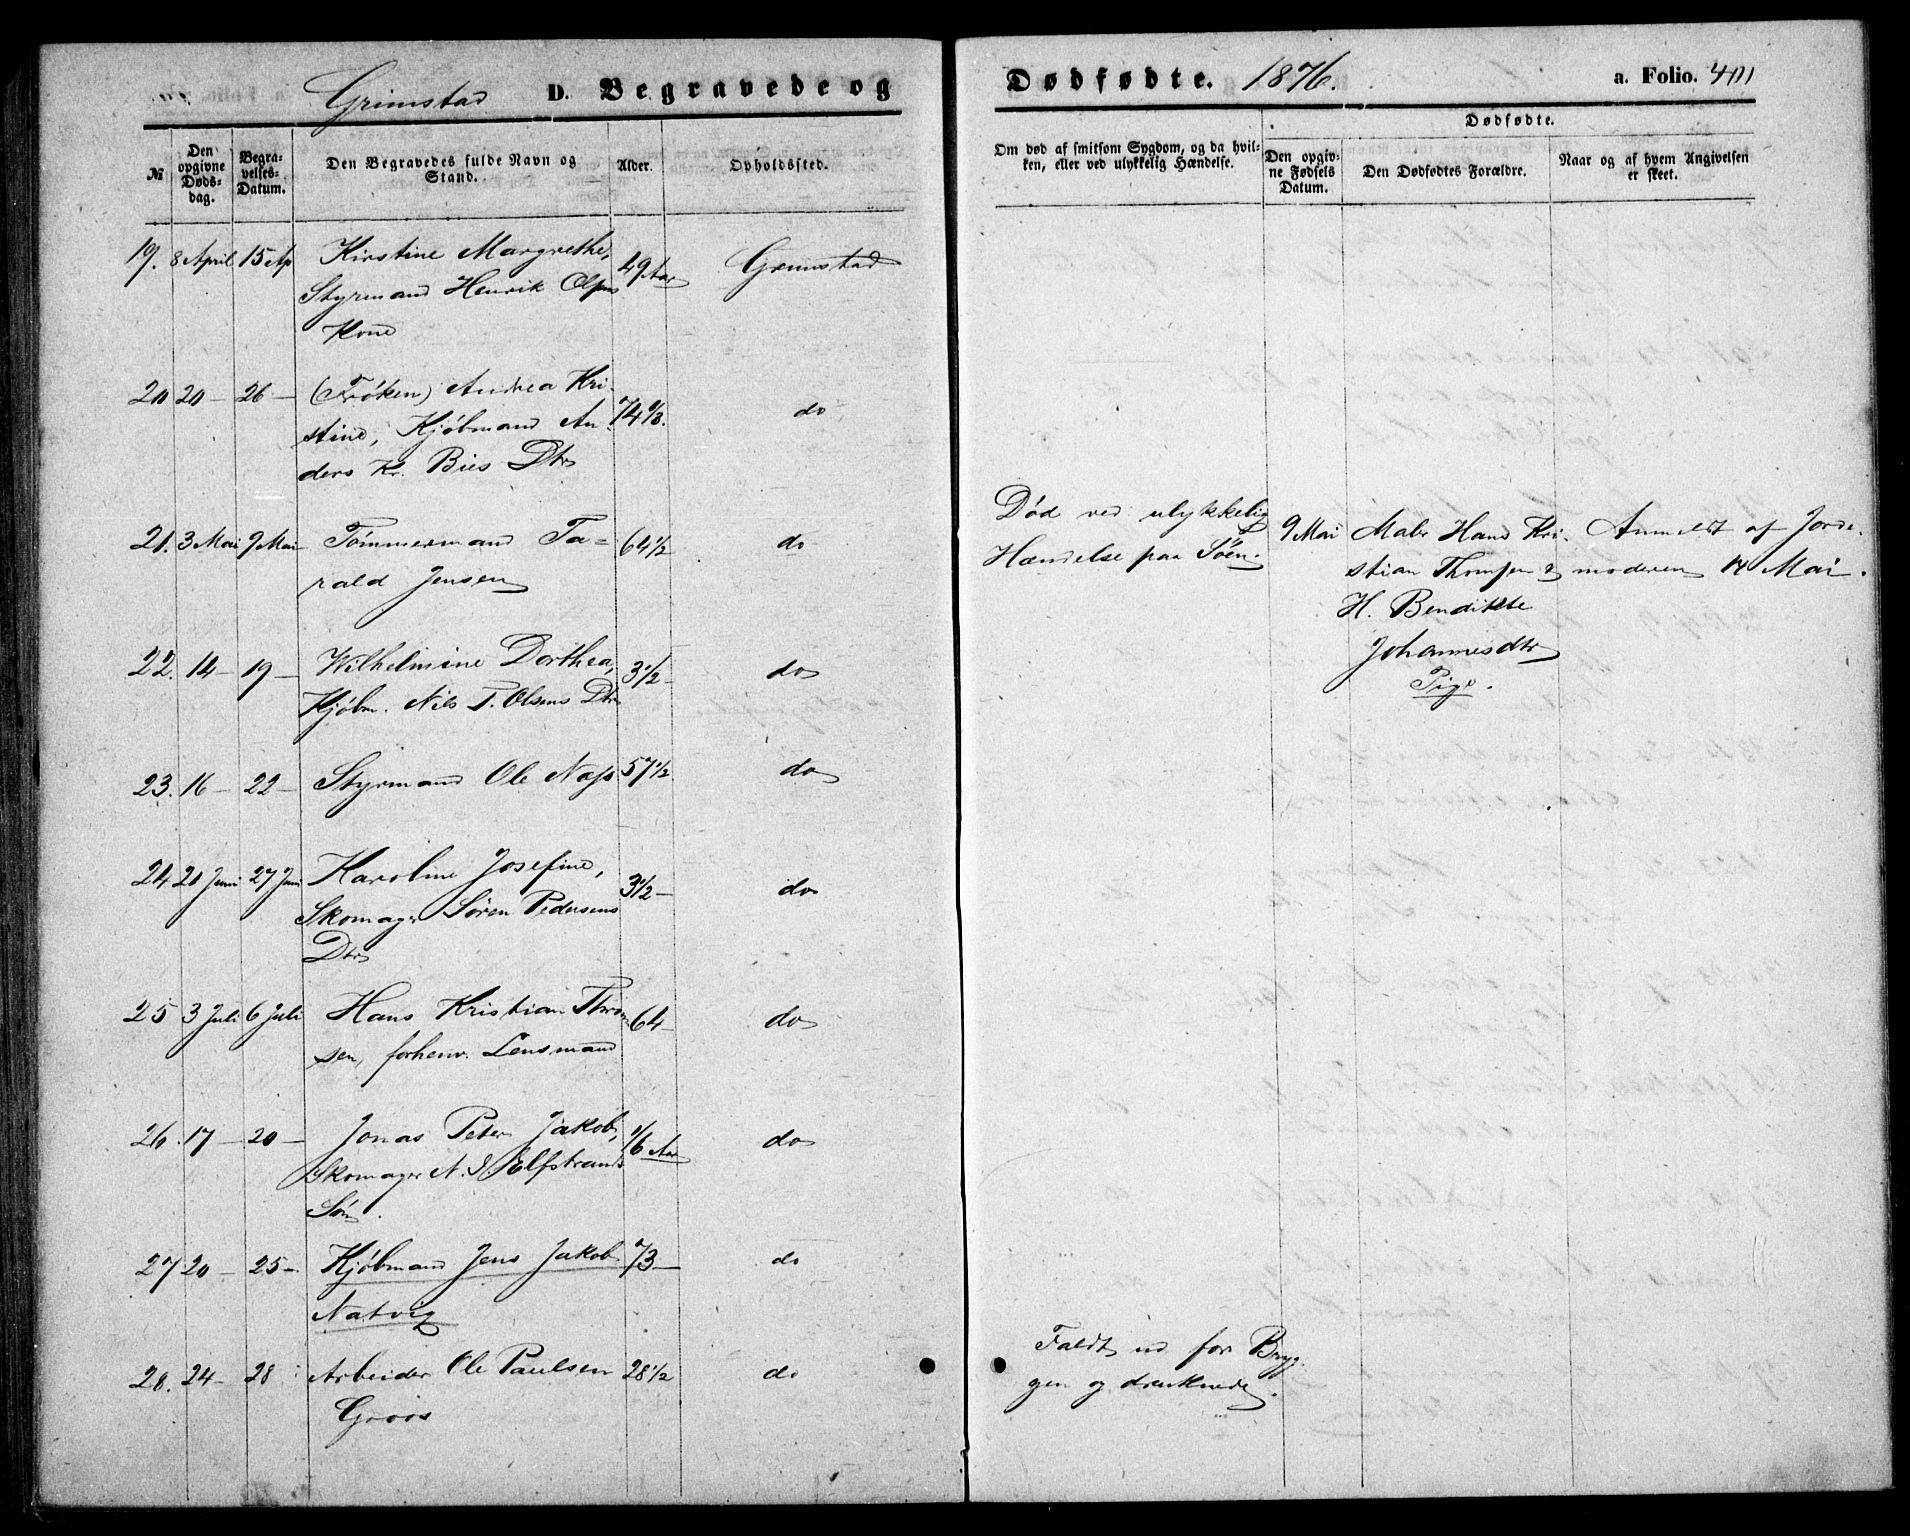 Grimstad D. Begravede og
Dødfødte. 1876. a. Folio. 401
№
Den opgivne Døds-dag.
Begra-velses-Datum.
Den Begravedes fulde Navn og Stand.
Alder.
Opholdssted.
Om død af smitsom Sygdom, og da hvil-
ken, eller ved ulykkelig Hændelse.
Dødfødte.
Den opgiv-
ne Fødsels
Datum.
Den Dødfødtes Forældre.
Naar og af hvem Angivelsen
er skeet.
19. 8 April 15 Ap Kirstine Margrethe, 49 Aar Grimstad
Styrmand Henrik Olsens
Kone
20 20 — 26 — (Frøken) Andrea Kri- 74 do
stine, Kjøbmand An-
ders Kr. Bies Dtr
21. 3 Mai 9 Mai Tømmermand Ta- 64 1/2 do
rald Jensen
Død ved ulykkelig
Hændelse paa Søen.
9 Mai Maler Hans Kri- Anmeldt af Jorde-
stian Thomsen & moderen 14 Mai.
H. Bendikte
Johannesdtr
Pige.
22. 14 — 19 — Wilhelmine Dorthea, 3 1/2 — do
Kjøbm. Nils T. Olsens Dtr
23. 16 — 22 — Styrmand Ole Næss 57 1/2 do
24 20 Juni 27 Juni Karoline Josefine, 3 1/2 — do
Skomager Søren Pedersens
Dtr
25 3 Juli 6 Juli Hans Kristian Thom 64 — do
sen, forhenv. Lensmand
26. 17 — 20 — Jonas Peter Jakob, 1/6 Aar do
Skomager N. J. Elfstrands
Søn.
27 20 — 25 — Kjøbmand Jens Jakob 73 — do
Natvig
28. 24 — 28 Arbeider Ole Paulsen 28 1/2 do
Groos
Faldt ud for Bryg-
gen og druknede.